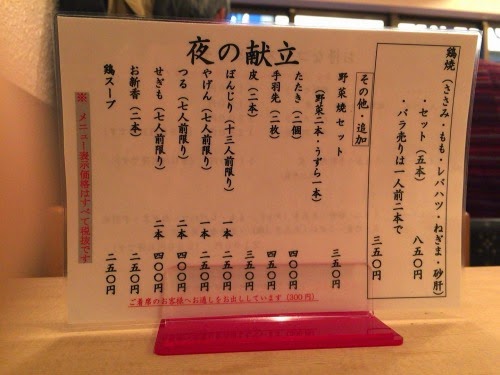 夜の献立
鶏焼（ささみ・もも・レバハツ・ねぎま・砂肝）
・セット（五本） 八五〇円
・バラ売りは一人前二本で
三五〇円
その他・追加
野菜焼セット 三五〇円
（野菜二本・うずら一本）
たたき（二個） 四〇〇円
手羽先（二枚） 四五〇円
皮（二本） 三五〇円
ぼんじり（十三人前限り） 一本 二五〇円
やげん（七人前限り） 一本 二五〇円
つる（七人前限り） 二本 四〇〇円
せぎも（七人前限り） 二本 四〇〇円
お新香（二本） 二五〇円
鶏スープ 二五〇円
※ メニュー表示価格はすべて税抜です
ご着席のお客様へお通しをお出ししています（300円）